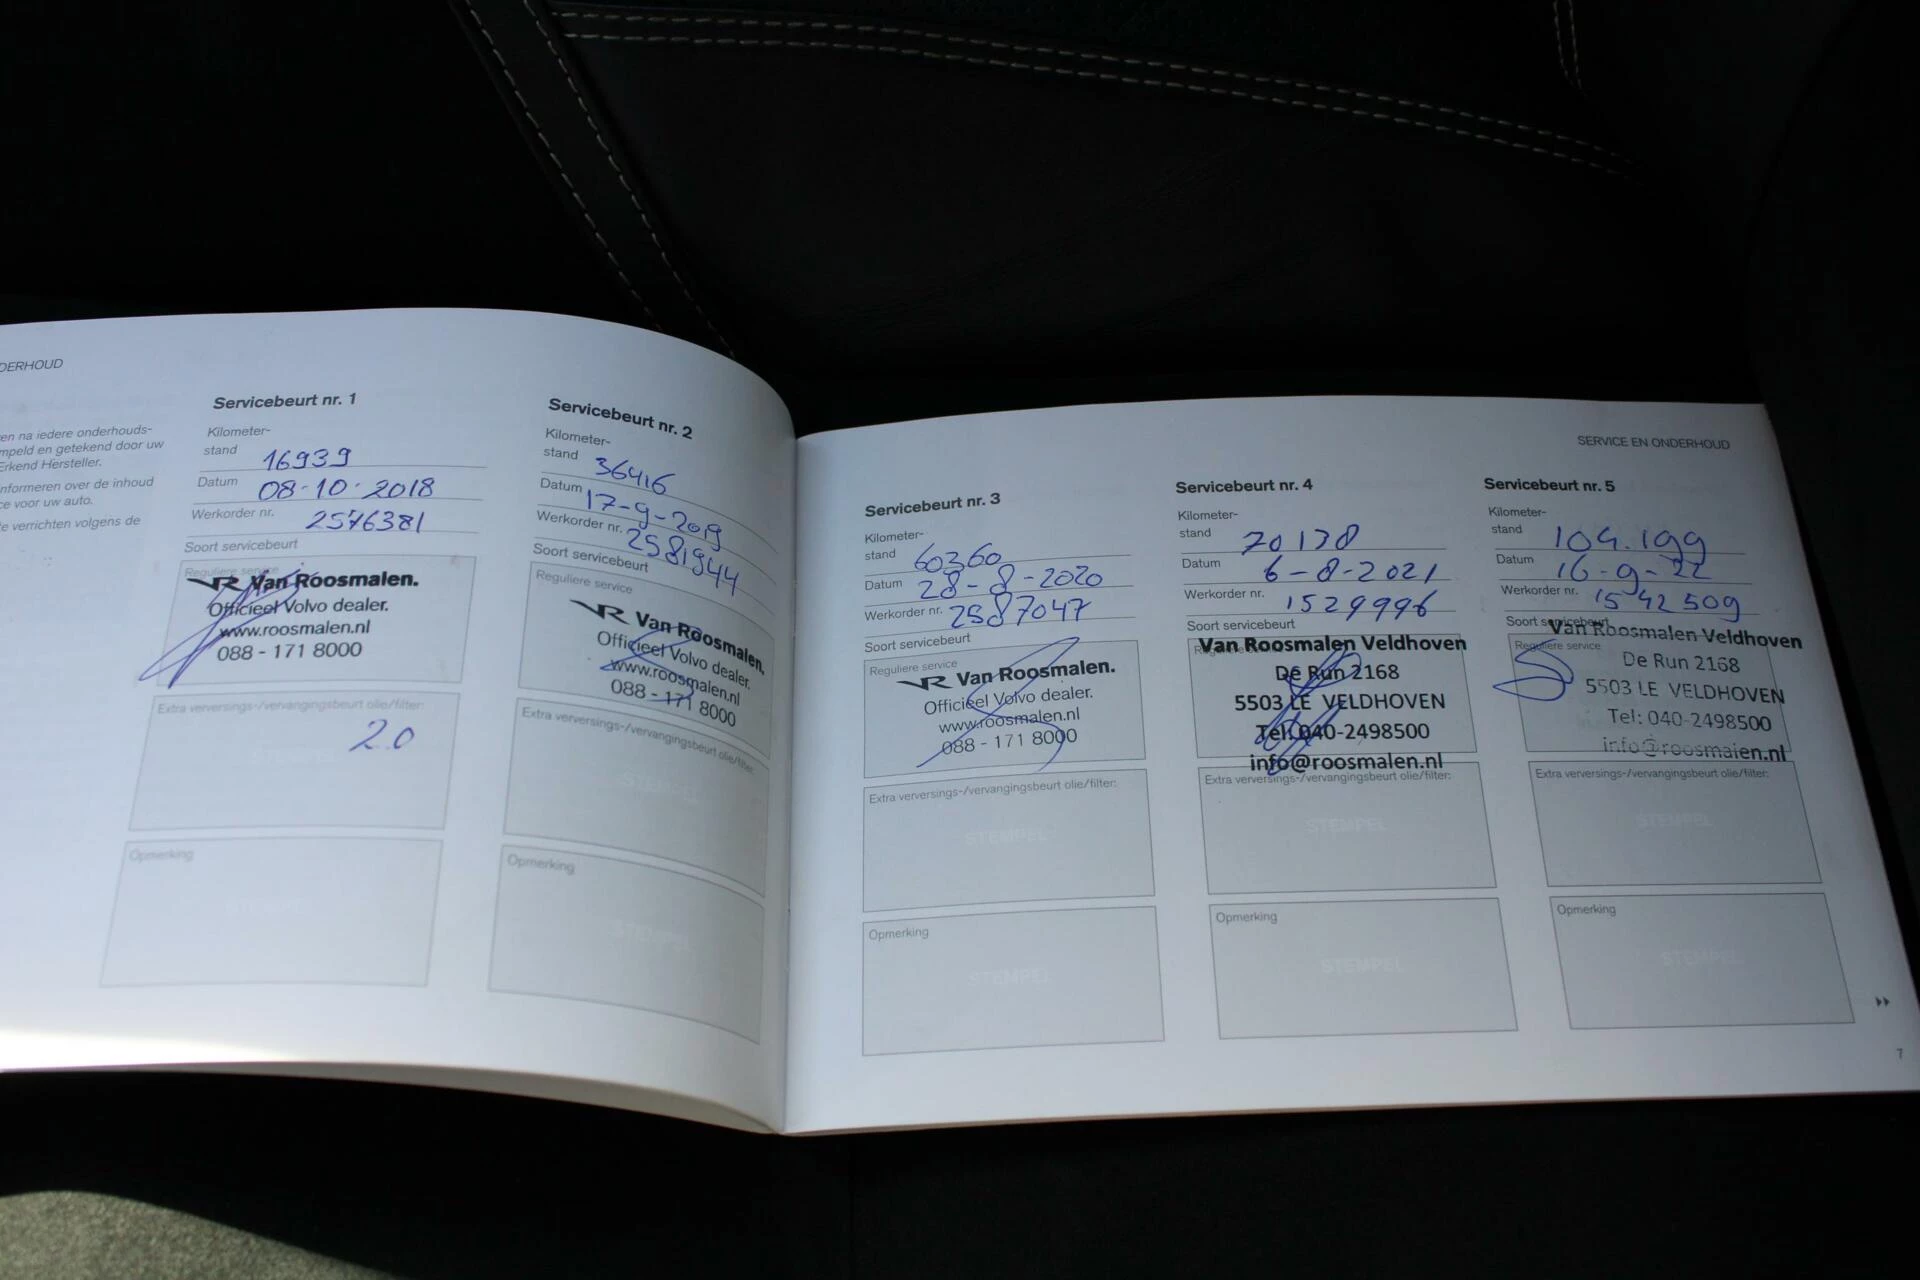 DERHOUD
en na iedere onderhouds-
mpeld en getekend door uw
Erkend Hersteller.
nformeren over de inhoud
ce voor uw auto.
te verrichten volgens de
Servicebeurt nr. 1
Kilometer-
stand 16939
Datum 08-10-2018
Werkorder nr. 2576381
Soort servicebeurt
Reguliere service
VR Van Roosmalen.
Officieel Volvo dealer.
www.roosmalen.nl
088 - 171 8000
Extra verversings-/vervangingsbeurt olie/filter:
2.0
STEMPEL
Opmerking
STEMPEL
Servicebeurt nr. 2
Kilometer-
stand 36416
Datum 17-9-2019
Werkorder nr. 2581944
Soort servicebeurt
Reguliere service
VR Van Roosmalen.
Officieel Volvo dealer.
www.roosmalen.nl
088 - 171 8000
Extra verversings-/vervangingsbeurt olie/filter:
STEMPEL
Opmerking
STEMPEL
SERVICE EN ONDERHOUD
Servicebeurt nr. 3
Kilometer-
stand 60360
Datum 28-8-2020
Werkorder nr. 2587047
Soort servicebeurt
Reguliere service
VR Van Roosmalen.
Officieel Volvo dealer.
www.roosmalen.nl
088 - 171 8000
Extra verversings-/vervangingsbeurt olie/filter:
STEMPEL
Opmerking
STEMPEL
Servicebeurt nr. 4
Kilometer-
stand 70138
Datum 6-8-2021
Werkorder nr. 1529996
Soort servicebeurt
Reguliere service
Van Roosmalen Veldhoven
De Run 2168
5503 LE VELDHOVEN
Tel: 040-2498500
info@roosmalen.nl
Extra verversings-/vervangingsbeurt olie/filter:
STEMPEL
Opmerking
STEMPEL
Servicebeurt nr. 5
Kilometer-
stand 104.199
Datum 16-9-22
Werkorder nr. 1542509
Soort servicebeurt
Reguliere service
Van Roosmalen Veldhoven
De Run 2168
5503 LE VELDHOVEN
Tel: 040-2498500
info@roosmalen.nl
Extra verversings-/vervangingsbeurt olie/filter:
STEMPEL
Opmerking
STEMPEL
7